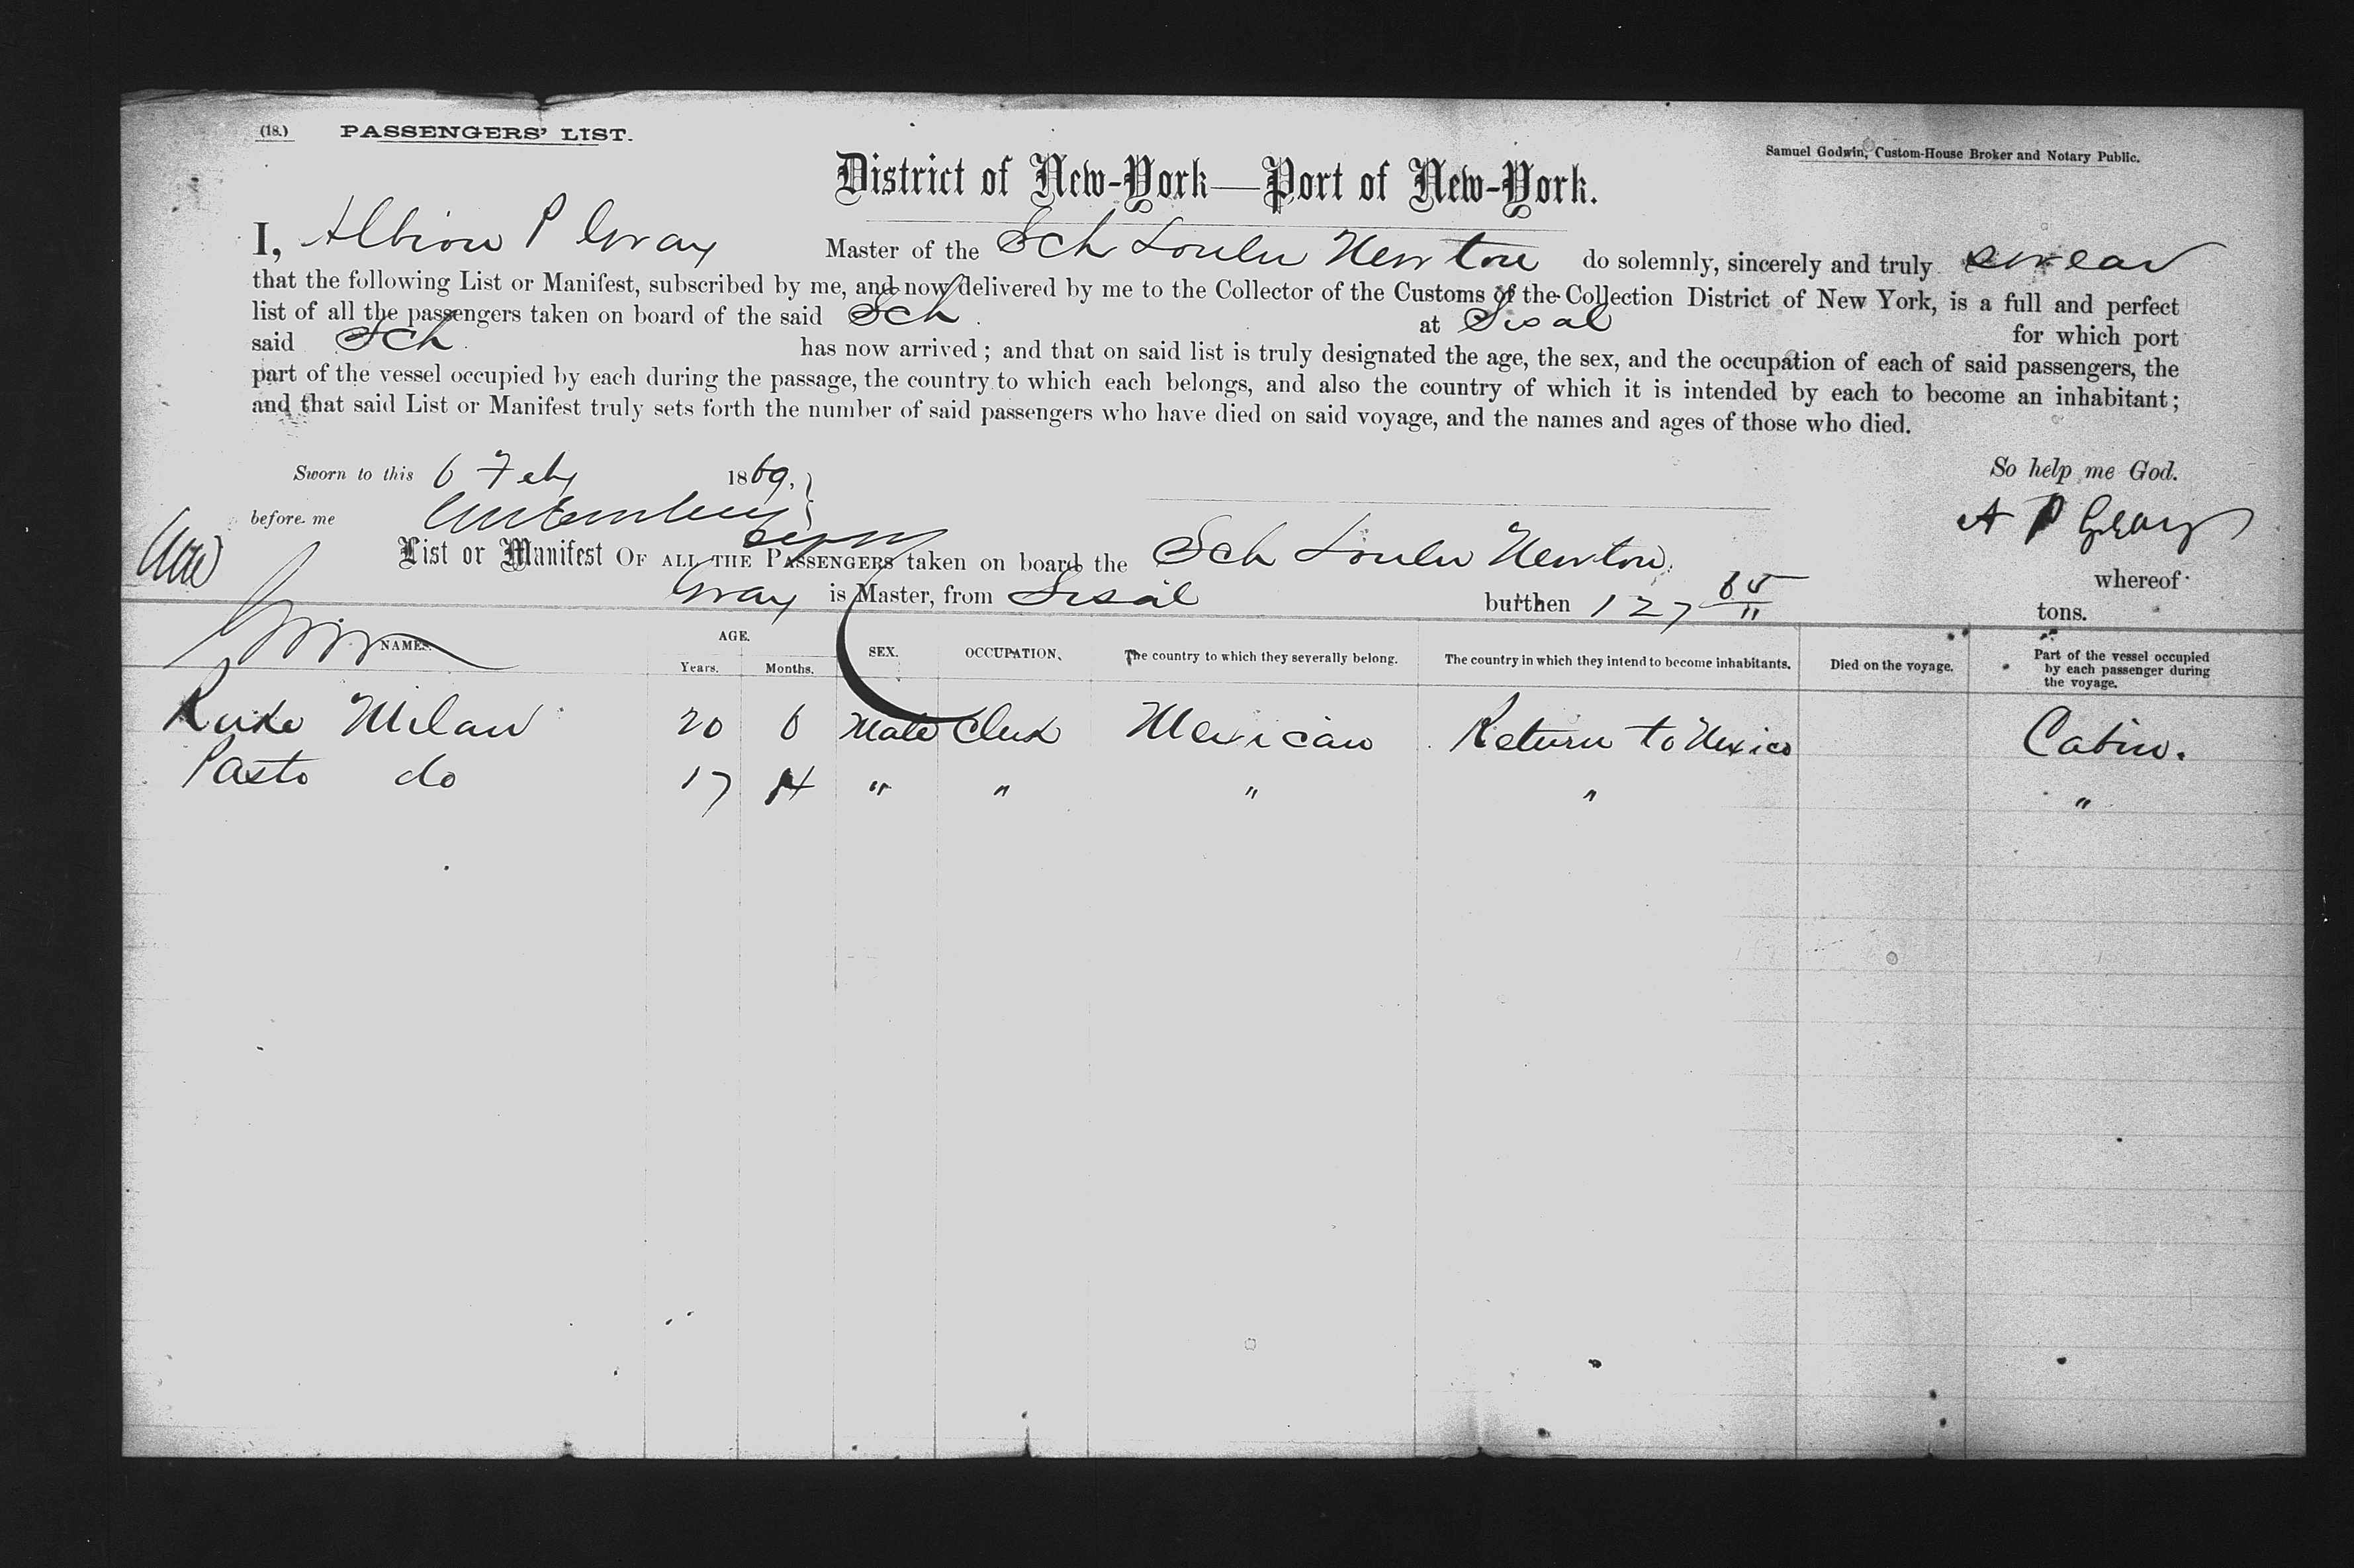 (18.) PASSENGERS' LIST.
Samuel Godwin, Custom-House Broker and Notary Public.
District of New-York—Port of New-York.
I, Albion P Gray Master of the Sch Loulu Newton do solemnly, sincerely and truly swear
that the following List or Manifest, subscribed by me, and now delivered by me to the Collector of the Customs of the Collection District of New York, is a full and perfect
list of all the passengers taken on board of the said Sch at Sisal for which port
said Sch has now arrived; and that on said list is truly designated the age, the sex, and the occupation of each of said passengers, the
part of the vessel occupied by each during the passage, the country to which each belongs, and also the country of which it is intended by each to become an inhabitant;
and that said List or Manifest truly sets forth the number of said passengers who have died on said voyage, and the names and ages of those who died.
Sworn to this 6 Feby 1869, So help me God.
before me A P Gray
List or Manifest OF ALL THE PASSENGERS taken on board the Sch Loulu Newton whereof
Gray is Master, from Sisal burthen 127 65/11 tons.
NAMES. AGE. Years. Months. SEX. OCCUPATION. The country to which they severally belong. The country in which they intend to become inhabitants. Died on the voyage. Part of the vessel occupied by each passenger during the voyage.
Milan 20 6 Male Clerk Mexican Return to Mexico Cabin.
Pasto do 17 " " " " "